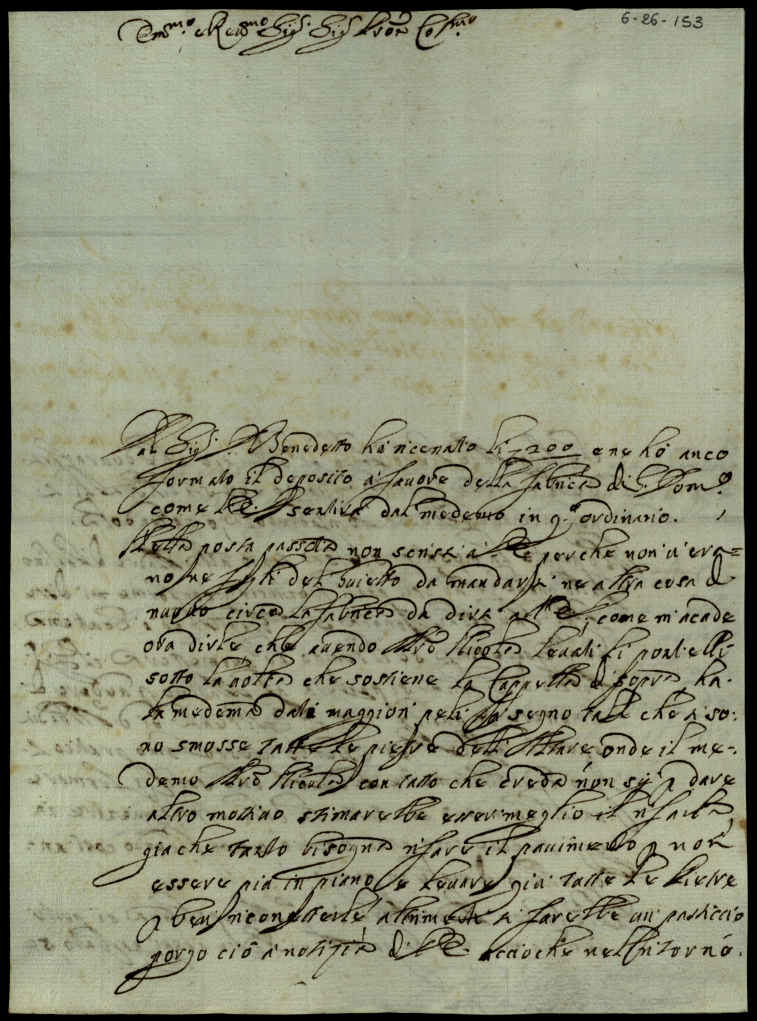 6-26-153
Emmo. e Reumo Sig. Sig. Pron Colmo
Dal Sig. Benedetto hò riceuuto li 200 e ne hò anco
formato il deposito à fauore della fabrica di S. Dom.co
come V.E. sentirà dal medemo in q.o ordinario.
Nella posta passata non scrissi à V.E. perche non vi era=
no ne fogli del da mandarli ne altra cosa di
nuouo circa la fabrica da dire a V.E., come m'acade
ora dirle che auendo Mro Nicola leuati li pontelli
sotto la volta che sostiene la Cappella di sopra, ha
la medema dati maggiori peli à segno tale che si so:
no smosse tutte le pietre dell'Altare, onde il me-
demo Mro Nicola con tutto che creda non sij p dare
altro motiuo stimarebbe esser meglio il rifarla,
giache tanto bisogna rifare il pauimento p non
essere più in piano e leuare già tutte le Pietre
p ben riconetterle altrimente si farebbe un pasticcio
porgo ciò à notizia di V.E. acciochè nell' ritorno.